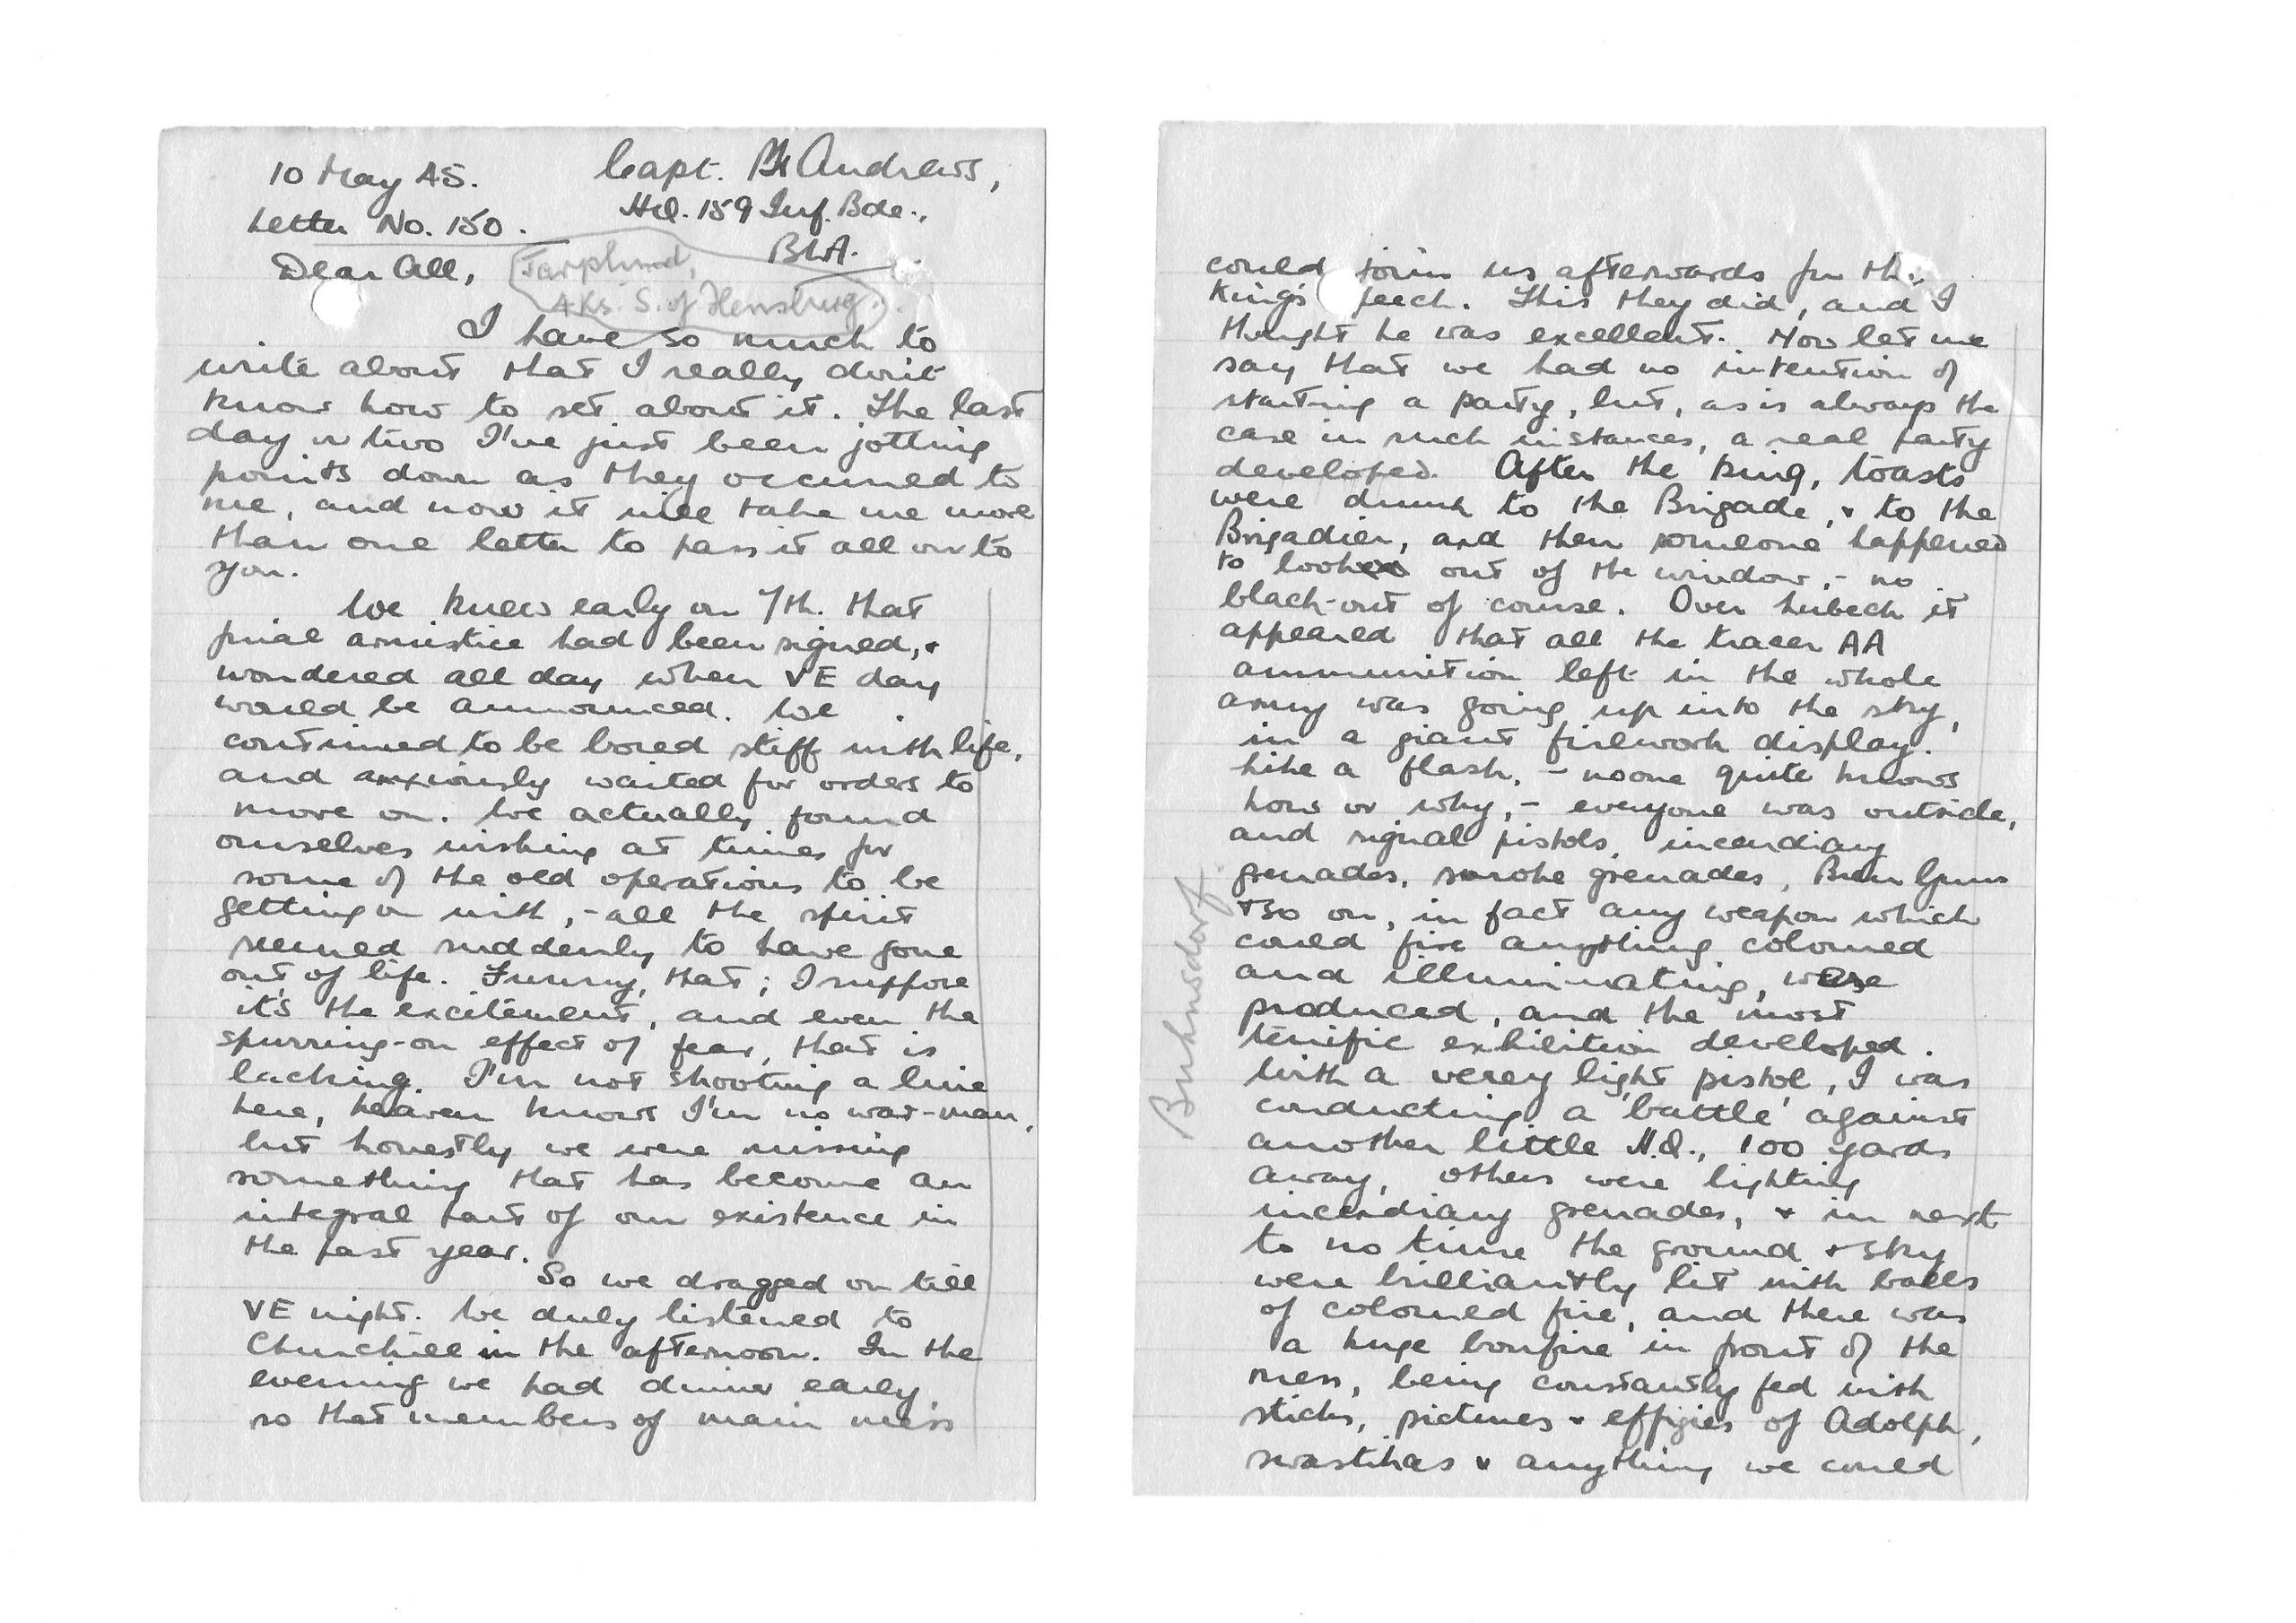 10 May 45.
Capt. Andrews,
HQ. 159 Inf. Bde.,
Letter No. 150.
BLA.
Dear All,
Tarphund,
4 Ks. S. of Flensburg.
I have so much to
write about that I really don't
know how to set about it. The last
day or two I've just been jotting
points down as they occurred to
me, and now it will take me more
than one letter to pass it all on to
you.
We knew early on 7th. that
final armistice had been signed, &
wondered all day when VE day
would be announced. We
continued to be bored stiff with life,
and anxiously waited for orders to
move on. We actually found
ourselves wishing at times for
some of the old operations to be
getting on with, - all the spirit
seemed suddenly to have gone
out of life. Funny, that; I suppose
it's the excitement, and even the
spurring-on effect of fear, that is
lacking. I'm not shooting a line
here, heaven knows I'm no war-man,
but honestly we were missing
something that has become an
integral part of our existence in
the past year.
So we dragged on till
VE night. We duly listened to
Churchill in the afternoon. In the
evening we had dinner early,
so that members of main mess
could join us afterwards for the
King's speech. This they did, and I
thought he was excellent. Now let me
say that we had no intention of
starting a party, but, as is always the
case in such instances, a real party
developed. After the King, toasts
were drunk to the Brigade, & to the
Brigadier, and then someone happened
to look out of the window, - no
black-out of course. Over Lubeck it
appeared that all the tracer AA
ammunition left in the whole
army was going up into the sky,
in a giant firework display.
Like a flash, - noone quite knows
how or why, - everyone was outside,
and signal pistols, incendiary
grenades, smoke grenades, Bren Guns
& so on, in fact any weapon which
could fire anything coloured
and illuminating, were
produced, and the most
terrific exhibition developed.
With a verey light pistol, I was
conducting a 'battle' against
another little H.Q., 100 yards
away, others were lighting
incendiary grenades, & in next
to no time the ground & sky
were brilliantly lit with balls
of coloured fire, and there was
a huge bonfire in front of the
mess, being constantly fed with
sticks, pictures & effigies of Adolph,
swastikas & anything we could
Buhnsdorf.